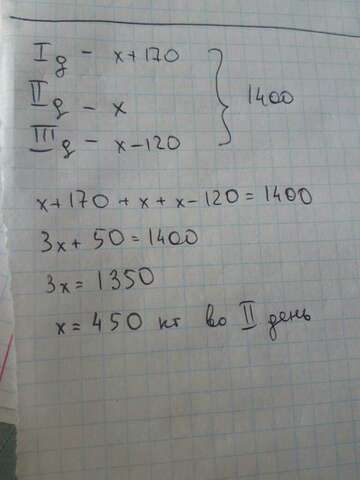 I д - x+170
II д - x
III д - x-120
1400
x+170 + x + x-120 = 1400
3x + 50 = 1400
3x = 1350
x = 450 кг во II день